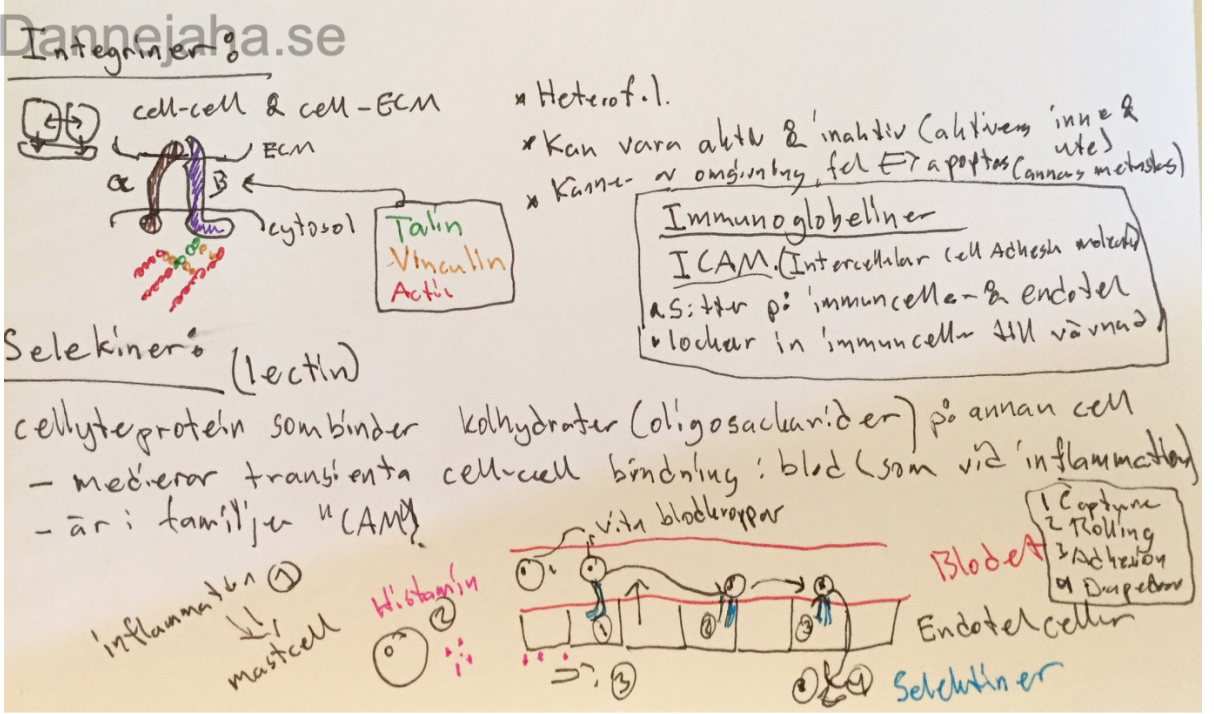 Dannejaha.se
Integriner:
cell-cell & cell-ECM
ECM
α
B
cytosol
Talin
Vinculin
Actin
* Heterofil.
* Kan vara aktiv & inaktiv (aktiveras inne & ute)
* Känner av omgivning, fel => apoptos (annars metastas)
Immunoglobeliner
ICAM. (Intercellular cell Adhesion molecule)
• Sitter på immunceller & endotel
• lockar in immunceller till vävnad
Selekiner:
(lectin)
cellyteprotein som binder kolhydrater (oligosackarider) på annan cell
- medierar transienta cell-cell bindning i blod (som vid inflammation)
- är i familjen "CAM"
vita blodkroppar
1 Capture
2 Rolling
3 Adhesion
4
Blodet
inflammation ①
mastcell
Histamin
②
① ② ③
Endotelceller
③
④
Selektiner